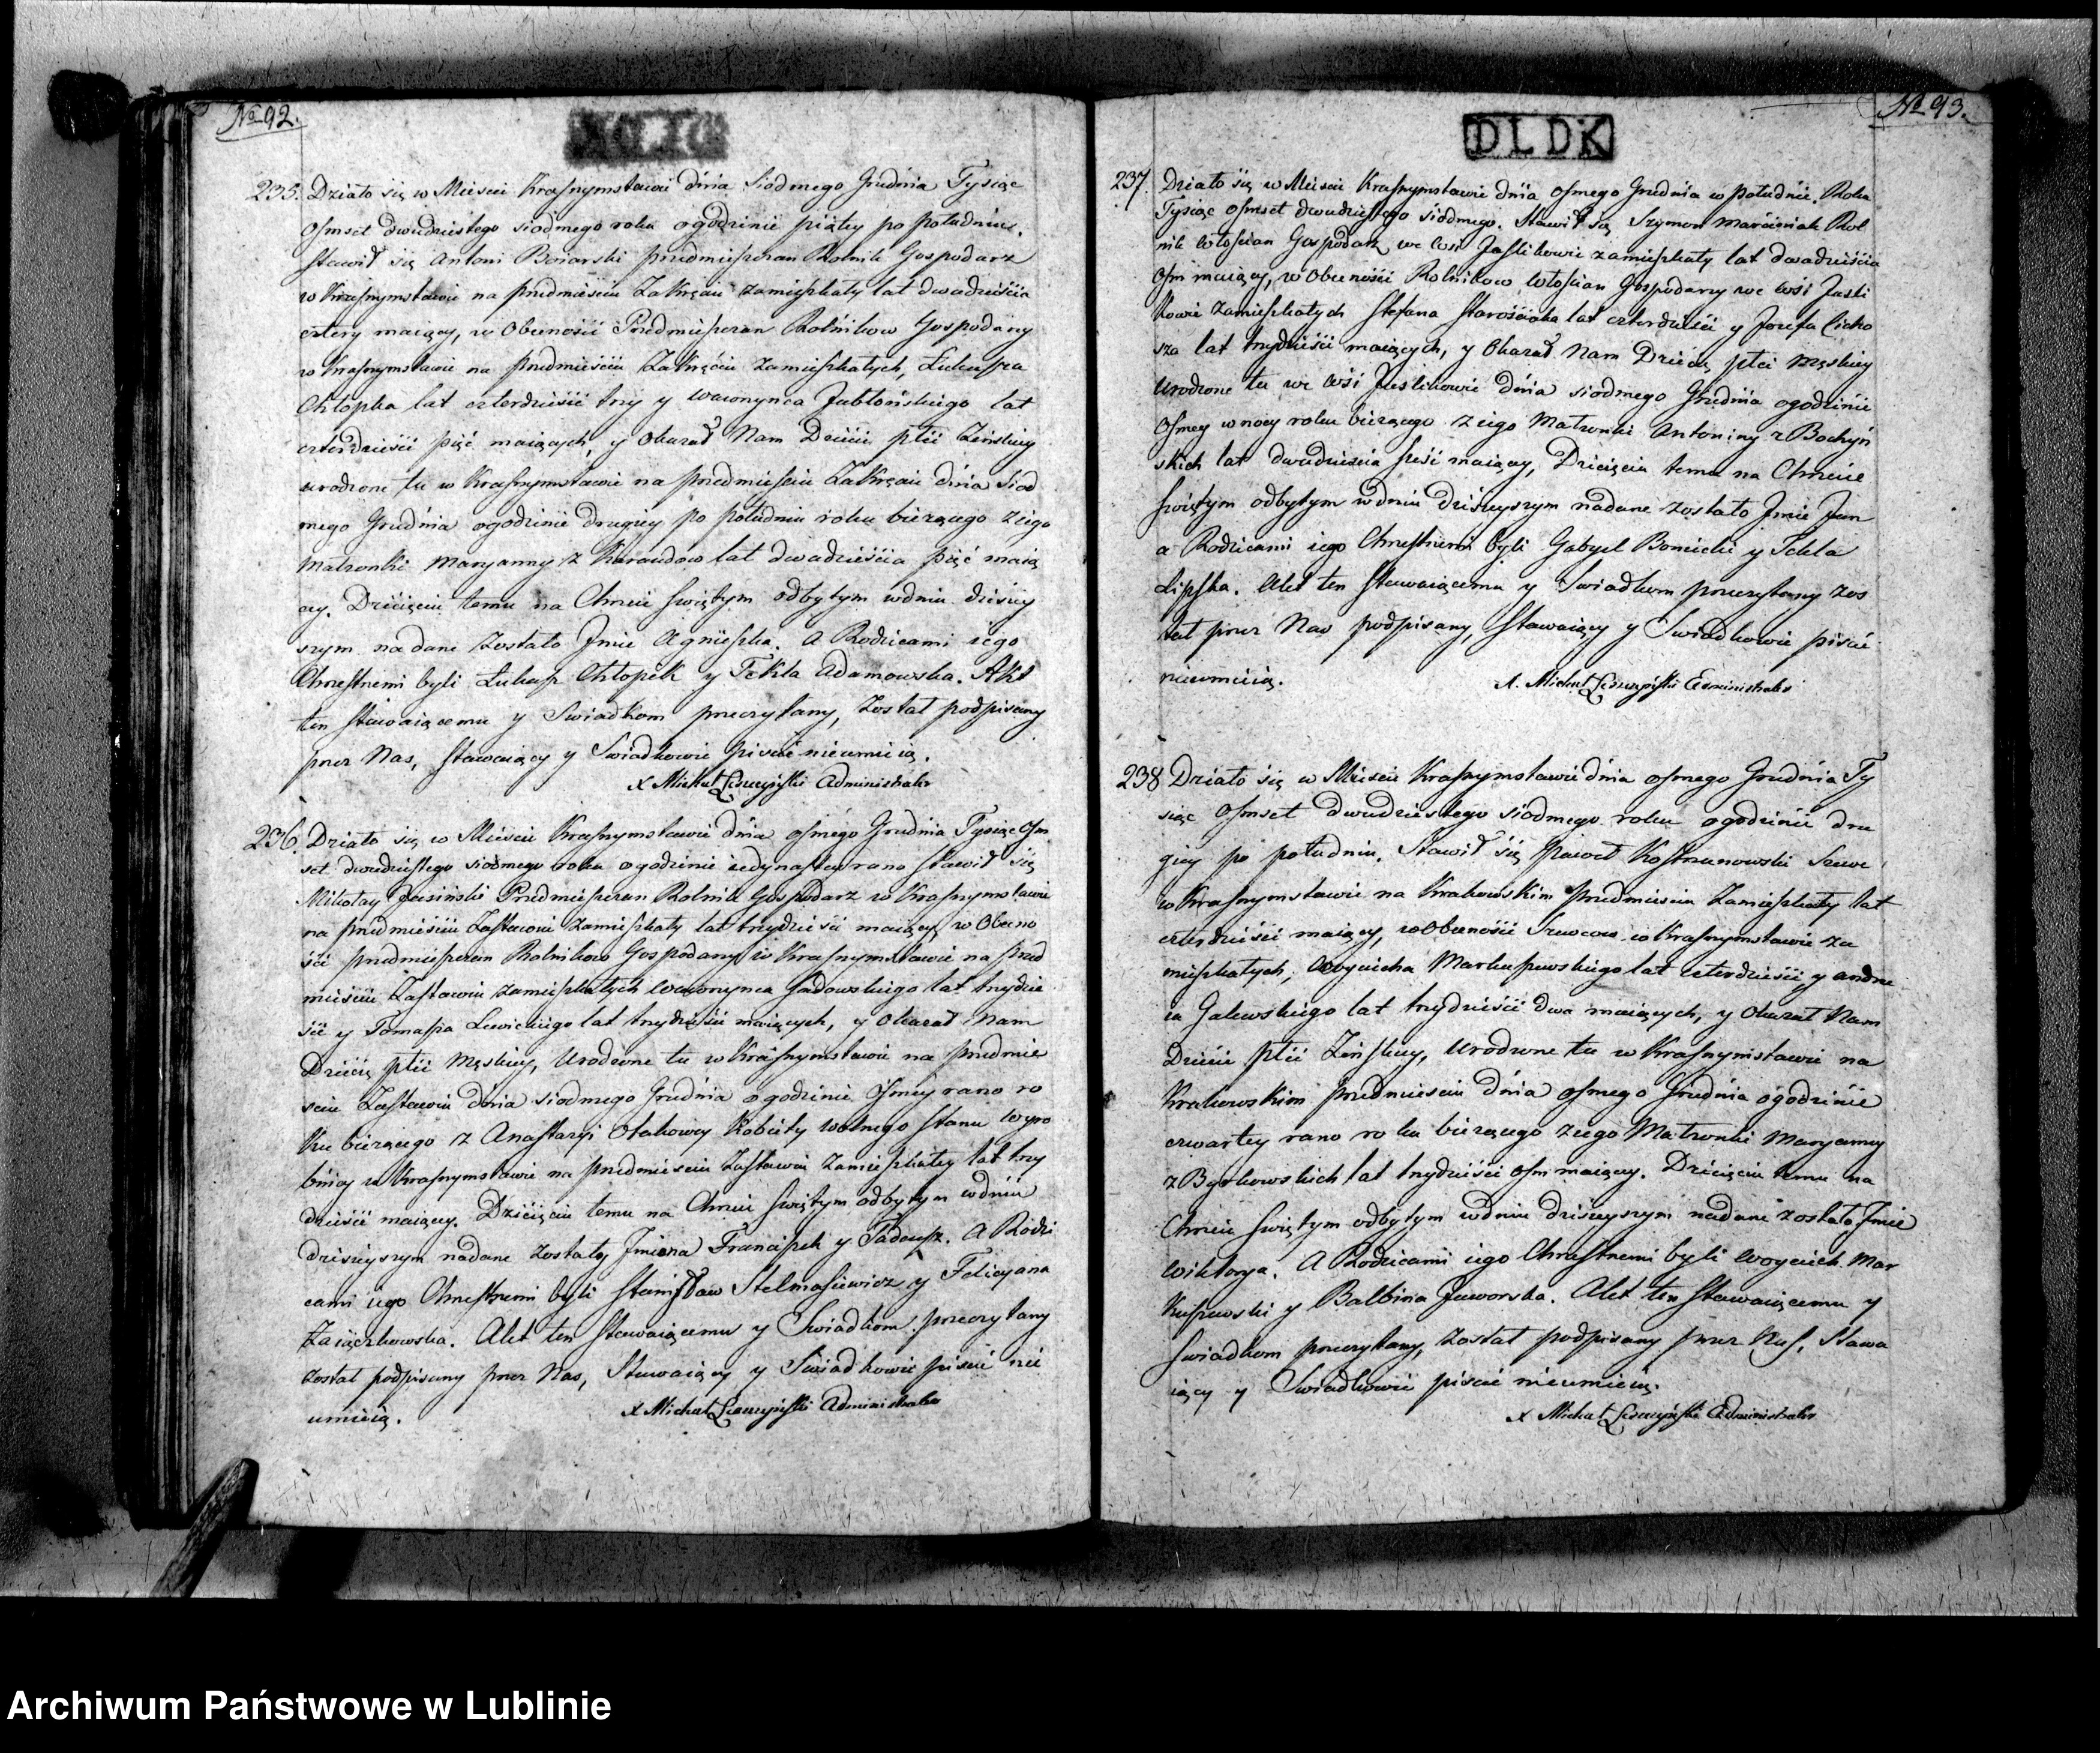 No 92.
235. Działo się w Mieście Krasnymstawie dnia Siodmego Grudnia Tysiąc
Osmset dwudziestego siodmego roku ogodzinie piątey po południu.
Stawił się Antoni Boiarski przedmiesczan Rolnik Gospodarz
w Krasnymstawie na przedmieściu Zakręciu zamieszkały lat dwadzieścia
cztery maiący, w Obecności Przedmiesczan Rolnikow Gospodarzy
w Krasnymstawie na przedmieściu Zakręciu zamieszkałych, Łukasza
Chłopka lat czterdzieści trzy y Wawrzynca Jabłońskiego lat
czterdzieści pięć maiących, y Okazał Nam Dziecie płci Zeńskiey
urodzone tu w Krasnymstawie na przedmieściu Zakręciu dnia Siod
mego Grudnia ogodzinie drugiey po południu roku bieżącego z iego
Małzonki Maryanny z Karaudow lat dwadzieścia pięć maią
cy. Dziecięciu temu na Chrzcie Swiętym odbytym wdniu dzisiey
szym nadane zostało Jmie Agnieszka. A Rodzicami iego
Chrzestnemi byli Łukasz Chłopek y Tekla Adamowska. Akt
ten Stawaiącemu y Swiadkom przeczytany, Został podpisany
przez Nas, Stawaiący y Swiadkowie pisać nieumieią.
X Michał Leszczyński Administrator
236. Działo się w Mieście Krasnymstawie dnia osmego Grudnia Tysiąc Osm
set dwudziestego siodmego roku ogodzinie iedynastey rano Stawił się
Mikołay Jasiński Przedmiesczan Rolnik Gospodarz w Krasnymstawie
na przedmieściu Zastawiu Zamieszkały lat trzydzieści maiący, w Obecno
ści przedmiesczan Rolnikow Gospodarzy w Krasnymstawie na przed
mieściu Zastawiu zamieszkałych Wawrzynca Sadowskiego lat trzydzie
ści y Tomasza Lewickiego lat trzydzieści maiących, y Okazał Nam
Dziecię płci Męskiey, Urodzone tu w Krasnymstawie na przedmie
sciu Zastawiu dnia siodmego Grudnia ogodzinie Osmey rano ro
ku bieżącego z Anastazyi Otakowey Kobiety wolnego stanu Wyro
bnicy w Krasnymstawie na przedmieściu Zastawiu Zamieszkałey lat trzy
dzieści maiący. Dziecięciu temu na Chrzcie Swiętym odbytym wdniu
dzisieyszym nadane zostały Jmiona Franciszek y Tadeusz. A Rodzi
cami iego Chrzestnemi byli Stanisław Stelmasiewicz y Felicyana
Zaiączkowska. Akt ten Stawaiącemu y Swiadkom przeczytany
został podpisany przez Nas, Stawaiący y Swiadkowie pisać nie
umieią.
X Michał Leszczyński Administrator
No 93.
DLDK
237. Działo się w Mieście Krasnymstawie dnia osmego Grudnia w południe. Roku
Tysiąc osmset dwudziestego siodmego. Stawił się Szymon Marciniak Rol
nik Włościan Gospodarz we Wsi Jaslikowie zamieszkały lat dwadzieścia
Osm maiący, w Obecności Rolnikow Włościan Gospodarzy we Wsi Jasli
kowie Zamieszkałych Stefana Starościaka lat czterdzieści y Jozefa Cicho
sza lat trzydzieści maiących, y Okazał Nam Dziecię płci Męskiey
Urodzone tu we Wsi Jaslikowie dnia siodmego Grudnia ogodzinie
Osmey wnocy roku bieżącego z iego Małzonki Antoniny z Bochyń
skich lat dwadzieścia sześć maiący, Dziecięciu temu na Chrzcie
Swiętym odbytym wdniu dzisieyszym nadane zostało Jmie Jan
a Rodzicami iego Chrzestnemi byli Gabryel Boniecki y Tekla
Lipska. Akt ten Stawaiącemu y Swiadkom przeczytany zos
tał przez Nas podpisany, Stawaiący y Swiadkowie pisać
nieumieią.
X. Michał Leszczyński Administrator
238 Działo się w Mieście Krasnymstawie dnia osmego Grudnia Ty
siąc Osmset dwudziestego siodmego roku ogodzinie dru
giey po południu. Stawił się Paweł Kostrzanowski Szewc
w Krasnymstawie na Krakowskim przedmieściu Zamieszkały lat
czterdzieści maiący, w Obecności Szewcow w Krasnymstawie za
mieszkałych, Woyciecha Markuszewskiego lat czterdzieści y Andrze
ia Galewskiego lat trzydzieści dwa maiących, y Okazał Nam
Dziecie płci Zeńskiey, Urodzone tu w Krasnymstawie na
Krakowskim przedmieściu dnia osmego Grudnia ogodzinie
czwartey rano roku bieżącego z iego Małzonki Maryanny
z Bąkowskich lat trzydzieści osm maiący. Dziecięciu temu na
Chrzcie Swiętym odbytym wdniu dzisieyszym nadane zostało Jmie
Wiktorya. A Rodzicami iego Chrzestnemi byli Woyciech Mar
kuszewski y Balbina Jaworska. Akt ten Stawaiącemu y
Swiadkom przeczytany, Został podpisany przez Nas, Stawa
iący y Swiadkowie pisać nieumieią.
X Michał Leszczyński Administrator
Archiwum Państwowe w Lublinie